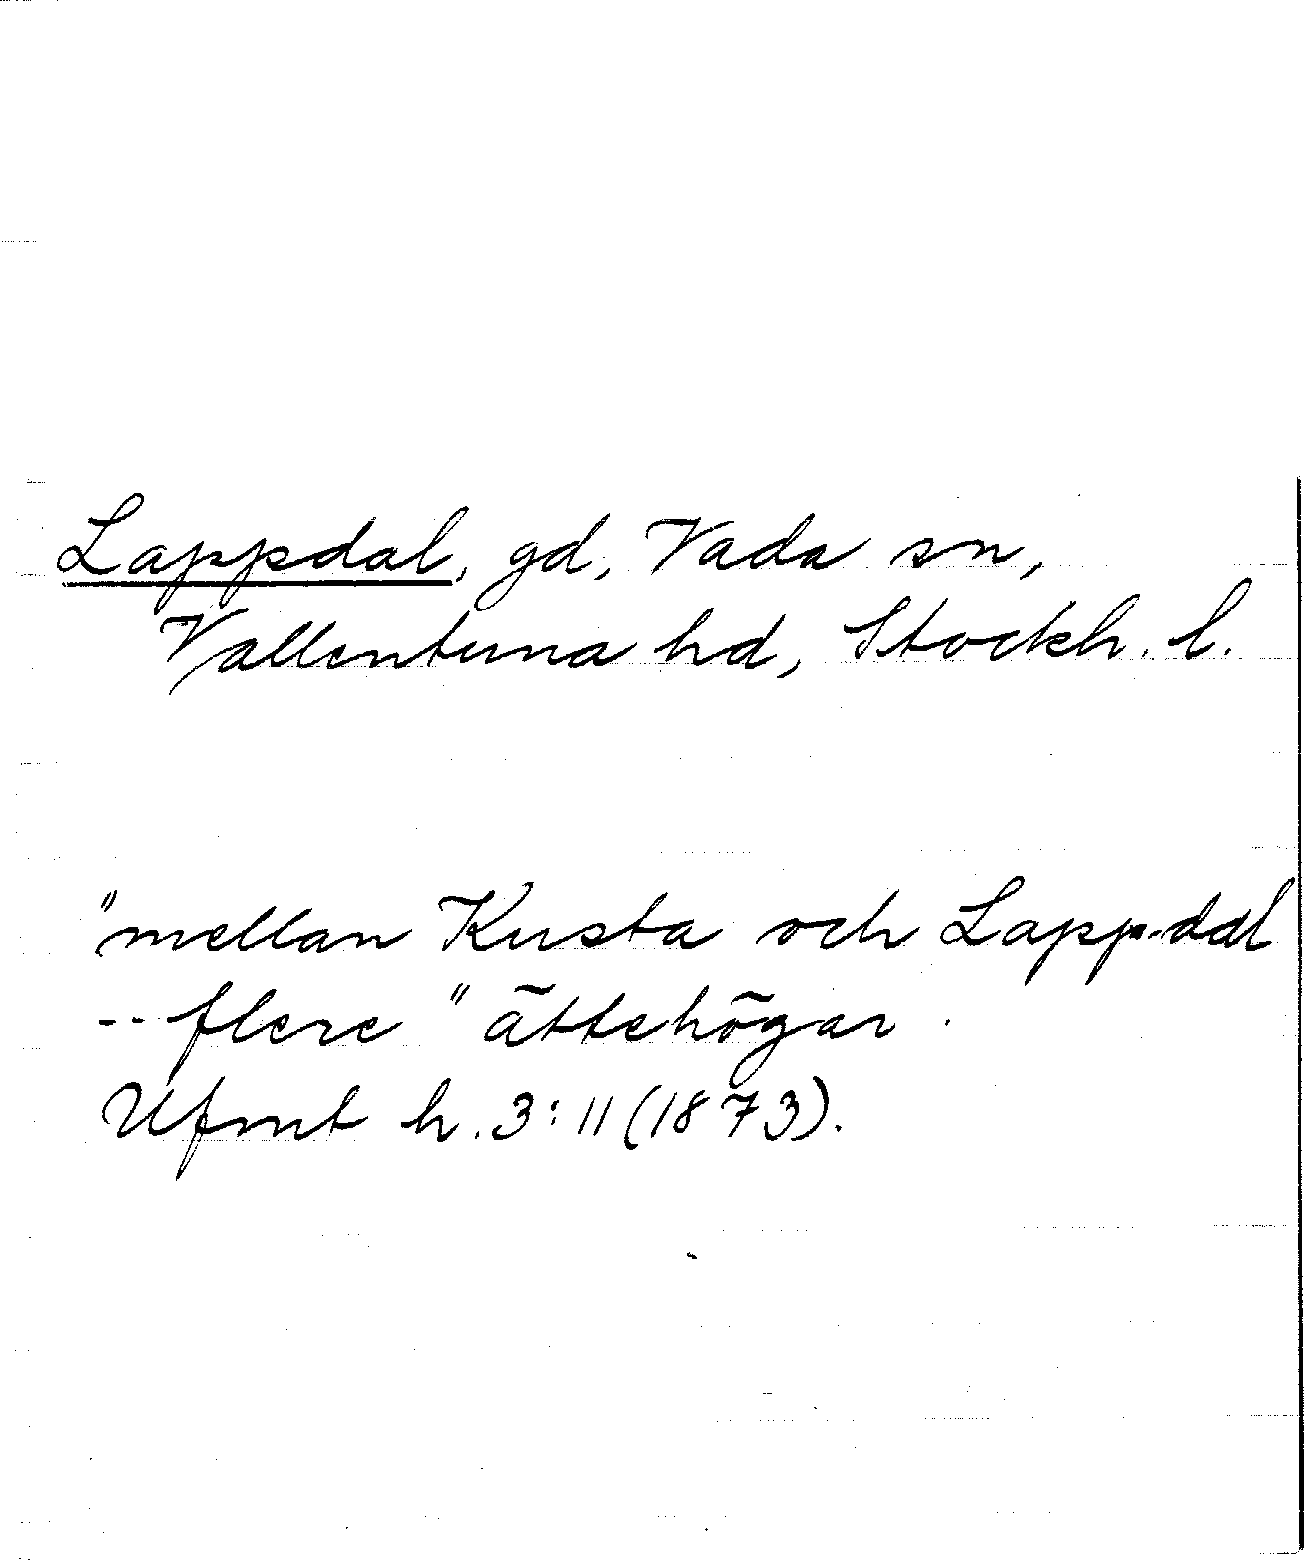 Lappdal, gd, Vada sn,
Vallentuna hd, Stockh. l.
"mellan Kusta och Lappdal
-- flere" ättehögar.
Ufmt h. 3:11 (1873).